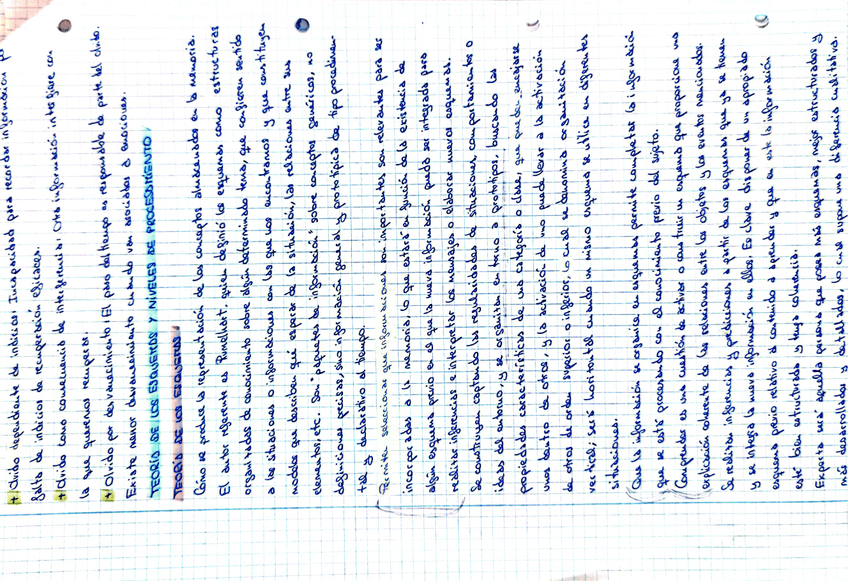 +) Olvido dependiente de indicios: Incapacidad para recordar información por
falta de indicios de recuperación eficaces.
+) Olvido como consecuencia de interferencia: Otra información interfiere con
la que queremos recuperar.
+) Olvido por desvanecimiento: El paso del tiempo es responsable de parte del olvido.
Existe menor desvanecimiento cuando van asociados a emociones.
TEORÍA DE LOS ESQUEMAS Y NIVELES DE PROCESAMIENTO
TEORÍA DE LOS ESQUEMAS
Cómo se produce la representación de los conceptos almacenados en la memoria.
El autor referente es Rumelhart, quien definió los esquemas como estructuras
organizadas de conocimiento sobre algún determinado tema, que confieren sentido
a las situaciones o informaciones con las que nos encontramos y que constituyen
modelos que describen qué esperar de la situación, las relaciones entre sus
elementos, etc. Son "paquetes de información" sobre conceptos genéricos, no
definiciones precisas, sino información general y prototípica de tipo procedimen-
tal y declarativo al tiempo.
Permite seleccionar que informaciones son importantes, son relevantes para ser
incorporadas a la memoria, lo que estará en función de la existencia de
algún esquema previo en el que la nueva información pueda ser integrada para
realizar inferencias e interpretar los mensajes o elaborar nuevos esquemas.
Se construyen captando las regularidades de situaciones, comportamientos o
ideas del entorno, y se organizan en torno a prototipos, buscando las
propiedades características de una categoría o clase, que pueden encajarse
unos dentro de otros, y la activación de uno puede llevar a la activación
de otros de orden superior o inferior, lo cual se denomina organización
vertical; será horizontal cuando un mismo esquema se utilice en diferentes
situaciones.
Que la información se organice en esquemas permite completar la información
que se está procesando con el conocimiento previo del sujeto.
Comprender es una cuestión de activar o construir un esquema que proporcione una
explicación coherente de las relaciones entre los objetos y los eventos mencionados.
Se realizan inferencias y predicciones a partir de los esquemas que ya se tienen
y se integra la nueva información en ellos. Es clave disponer de un apropiado
esquema previo relativo al contenido a aprender y que en este la información
esté bien estructurada y tenga coherencia.
Experta será aquella persona que posea más esquemas, mejor estructurados y
más desarrollados y detallados, lo cual supone una diferencia cualitativa.